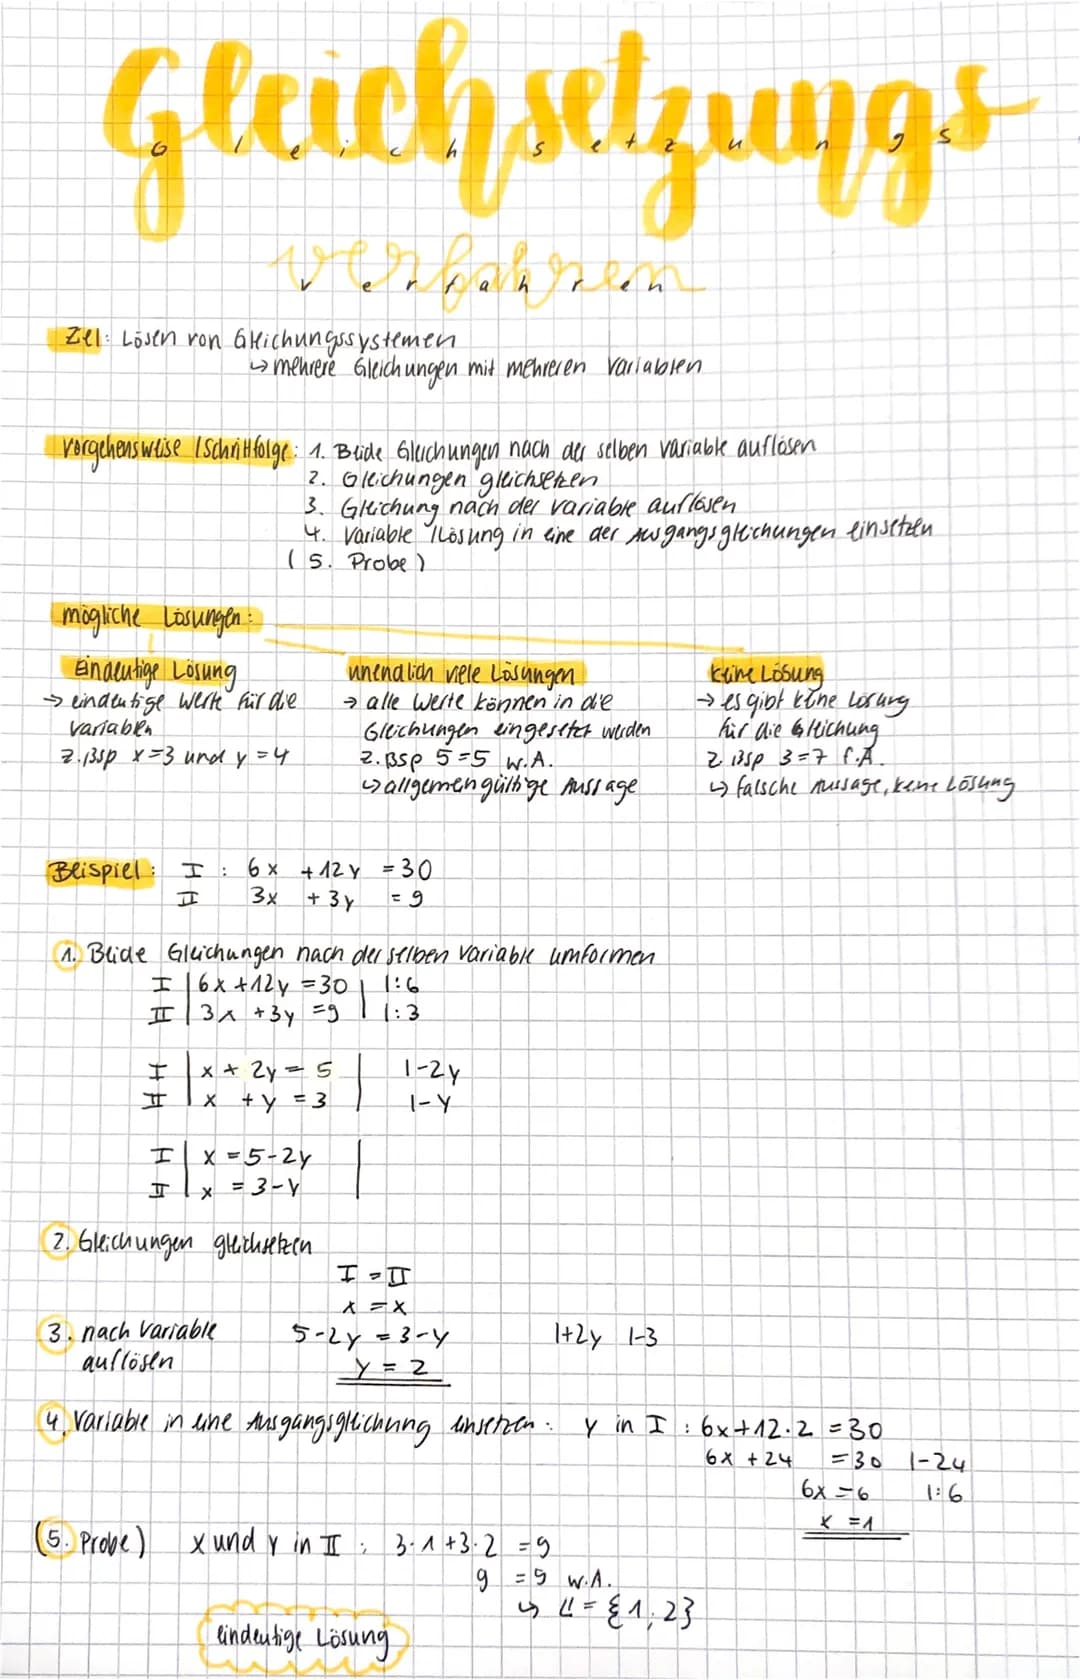 Gleichsetzungs
G l e i c h s e t z u n g s
verfahren
v e r f a h r e n
Ziel: Lösen von Gleichungssystemen
↳ mehrere Gleichungen mit mehreren Variablen
Vorgehensweise / Schrittfolge: 1. Beide Gleichungen nach der selben Variable auflösen
2. Gleichungen gleichsetzen
3. Gleichung nach der Variable auflösen
4. Variable / Lösung in eine der Ausgangsgleichungen einsetzen
(5. Probe)
mögliche Lösungen:
Eindeutige Lösung unendlich viele Lösungen keine Lösung
→ eindeutige Werte für die → alle Werte können in die → es gibt keine Lösung
Variablen Gleichungen eingesetzt werden für die Gleichung
z.Bsp x=3 und y=4 z.Bsp 5=5 w.A. z.Bsp 3=7 f.A.
↳ allgemengültige Aussage ↳ falsche Aussage, keine Lösung
Beispiel: I : 6x +12y =30
II 3x +3y =9
1. Beide Gleichungen nach der selben Variable umformen
I | 6x+12y =30 | |:6
II | 3x +3y =9 | |:3
I | x + 2y = 5 | |-2y
II | x +y =3 | |-y
I | x =5-2y |
II | x =3-y |
2. Gleichungen gleichsetzen
I = II
x = x
3. nach Variable 5-2y =3-y |+2y |-3
auflösen y = 2
4. Variable in eine Ausgangsgleichung einsetzen: y in I : 6x+12·2 =30
6x +24 =30 |-24
6x =6 |:6
x =1
(5. Probe) x und y in II : 3·1+3·2 =9
9 =9 w.A.
↳ 𝕃={1;2}
eindeutige Lösung